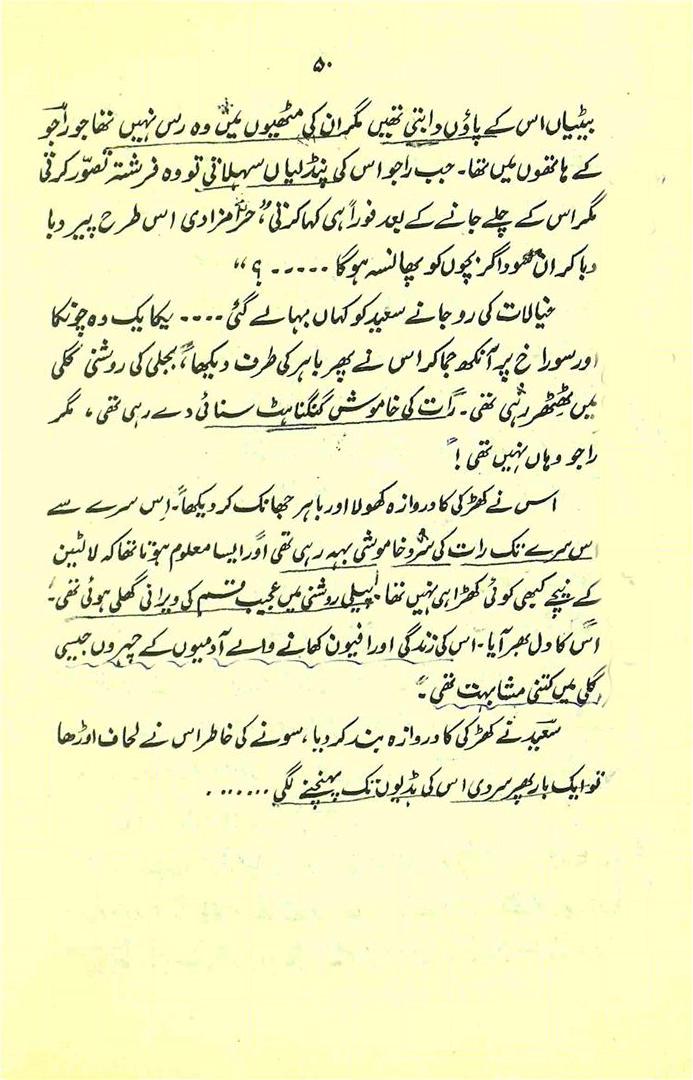 ۵۰
بیٹیاں اس کے پاؤں دابتی تھیں مگر ان کی مٹھیوں میں وہ رس نہیں تھا جو راجو
کے ہاتھوں میں تھا۔ جب راجو اس کی پنڈلیاں سہلاتی تو وہ فرشتہ تصوّر کرتی
مگر اس کے چلے جانے کے بعد فوراً ہی کہا کرتی، حرامزادی اس طرح پیر دبا
دبا کر ان سوداگر بچوں کو پھانسہ ہوگا ۔۔۔۔۔ ؟ "
خیالات کی رو جانے سعید کو کہاں بہا لے گئی ۔۔۔۔ یکایک وہ چونکا
اور سوراخ پر آنکھ جما کر اس نے پھر باہر کی طرف دیکھا، بجلی کی روشنی گلی
میں ٹھٹھر رہی تھی۔ رات کی خاموش گنگناہٹ سنائی دے رہی تھی ، مگر
راجو وہاں نہیں تھی !
اس نے کھڑکی کا دروازہ کھولا اور باہر جھانک کر دیکھا۔ اِس سرے سے
اس سرے تک رات کی سرد خاموشی بہہ رہی تھی اور ایسا معلوم ہوتا تھا کہ لالٹین
کے نیچے کبھی کوئی کھڑا ہی نہیں تھا۔ پیلی روشنی میں عجیب قسم کی ویرانی گھلی ہوئی تھی۔
اس کا دل بھر آیا۔ اس کی زندگی اور افیون کھانے والے آدمیوں کے چہروں جیسی
گلی میں کتنی مشابہت تھی ۔
سعید نے کھڑکی کا دروازہ بند کر دیا ، سونے کی خاطر اس نے لحاف اوڑھا
تو ایک بار پھر سردی اس کی ہڈیوں تک پہنچنے لگی ۔۔۔۔۔۔۔